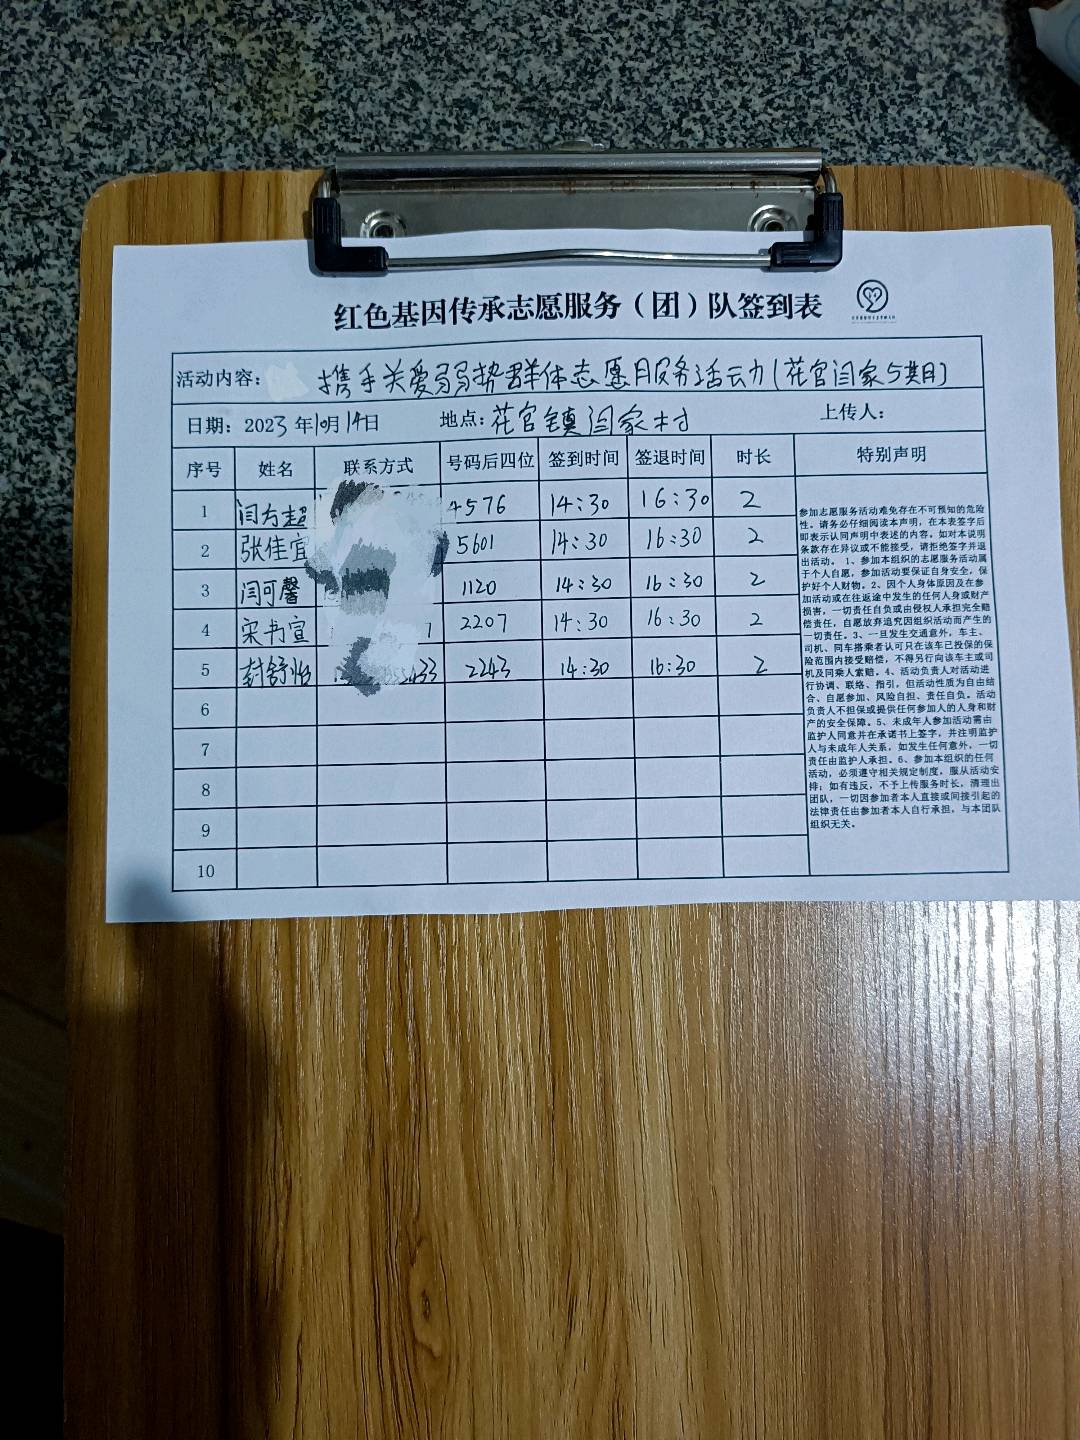 红色基因传承志愿服务（团）队签到表
活动内容： 携手关爱弱势群体志愿服务活动（花官闫家5期）
日期：2023年10月14日 地点：花官镇闫家村 上传人：
序号 姓名 联系方式 号码后四位 签到时间 签退时间 时长 特别声明
1 闫方超 4576 14:30 16:30 2
2 张佳宜 5601 14:30 16:30 2
3 闫可馨 1120 14:30 16:30 2
4 宋书宣 7 2207 14:30 16:30 2
5 封舒怡 2243 14:30 16:30 2
6
7
8
9
10
参加志愿服务活动难免存在不可预知的危险
性。请务必仔细阅读本声明，在本表签字后
即表示认同声明中表述的内容。如对本说明
条款存在异议或不能接受，请拒绝签字并退
出活动。 1、参加本组织的志愿服务活动属
于个人自愿，参加活动要保证自身安全，保
护好个人财物。2、因个人身体原因及在参
加活动或在往返途中发生的任何人身或财产
损害，一切责任自负或由侵权人承担完全赔
偿责任，自愿放弃追究因组织活动而产生的
一切责任。3、一旦发生交通意外，车主、
司机、同车搭乘者认可只在该车已投保的保
险范围内接受赔偿，不得另行向该车主或司
机及同乘人索赔。4、活动负责人对活动进
行协调、联络、指引，但活动性质为自由结
合、自愿参加、风险自担、责任自负。活动
负责人不担保或提供任何参加人的人身和财
产的安全保障。5、未成年人参加活动需由
监护人同意并在承诺书上签字，并注明监护
人与未成年人关系，如发生任何意外，一切
责任由监护人承担。6、参加本组织的任何
活动，必须遵守相关规定制度，服从活动安
排；如有违反，不予上传服务时长，清理出
团队，一切因参加者本人直接或间接引起的
法律责任由参加者本人自行承担，与本团队
组织无关。